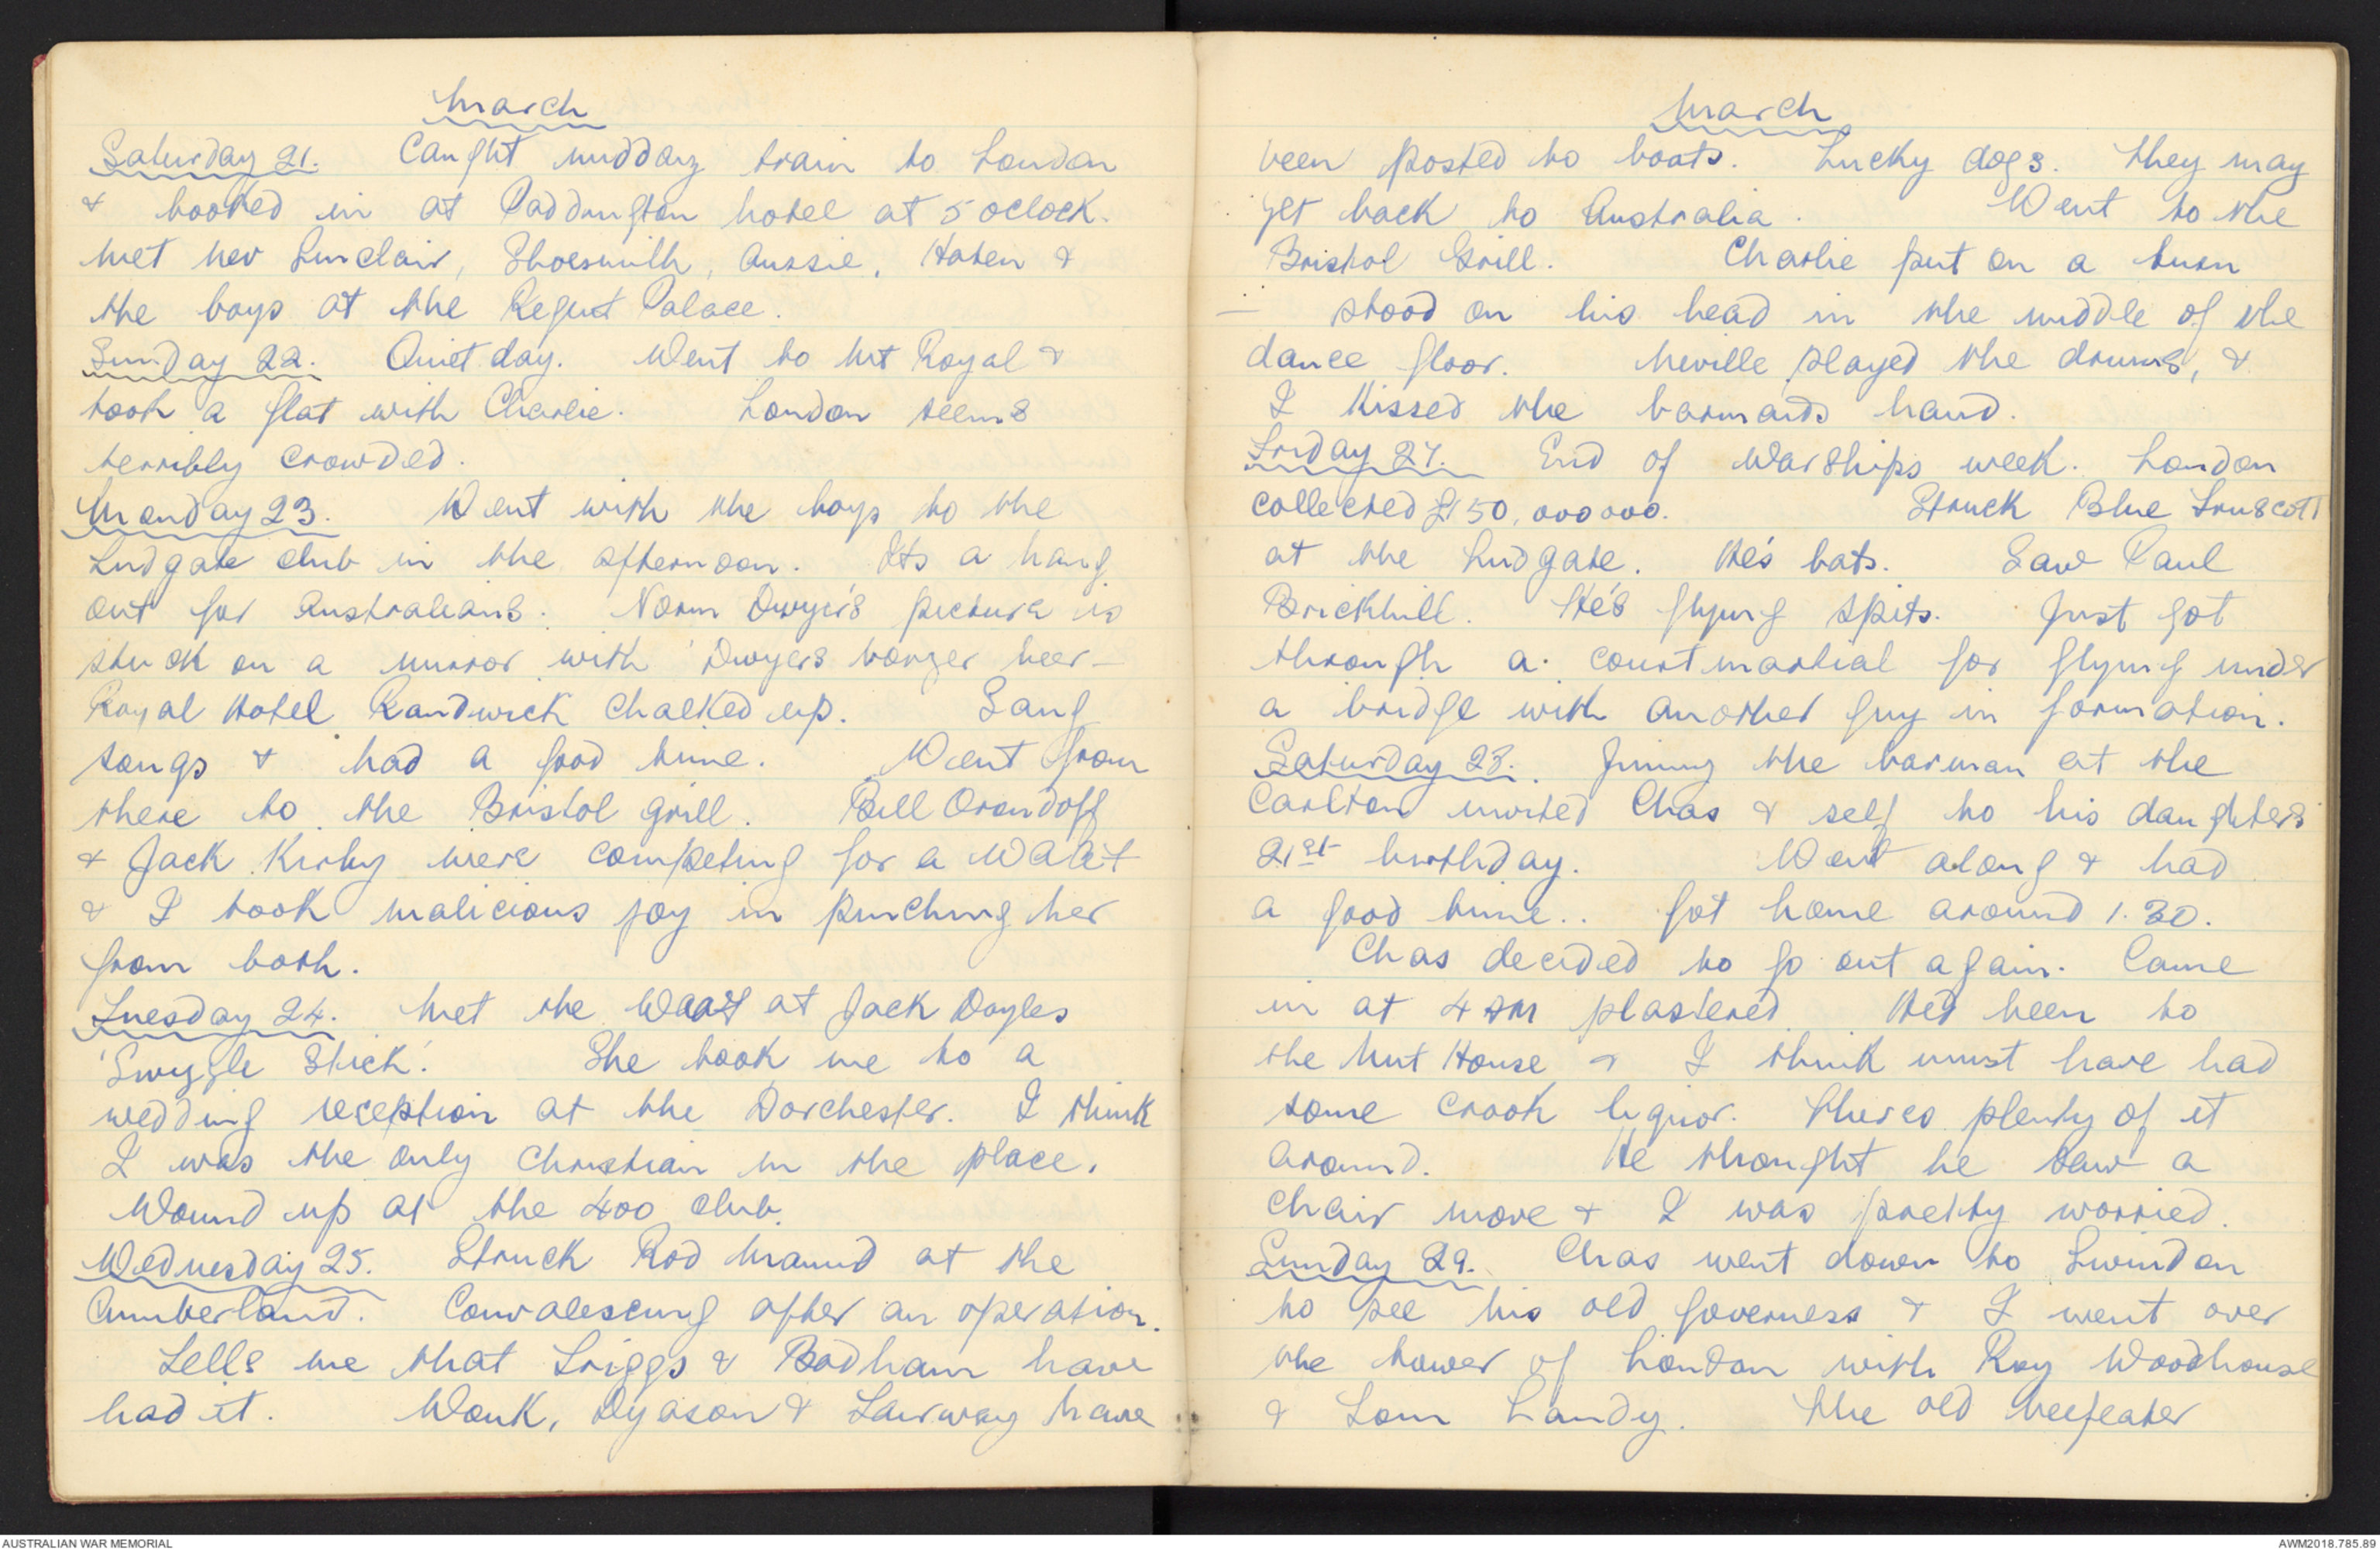 March
Saturday 21. Caught midday train to London
& booked in at Paddington hotel at 5 oclock.
Met Nev Sinclair, Shoesmith, Aussie, Haten &
the boys at the Regent Palace.
Sunday 22. Quiet day. Went to Mt Royal &
took a flat with Charlie. London seems
terribly crowded.
Monday 23. Went with the boys to the
Ludgate club in the afternoon. Its a hang
out for Australians. Norm Dwyer's picture is
stuck on a mirror with 'Dwyers bonzer beer -
Royal Hotel Randwick chalked up. Sang
songs & had a good time. Went from
there to the Bristol grill. Bill Orandoff
& Jack Kirby were competing for a WAAF
& I took malicious joy in pinching her
from both.
Tuesday 24. Met the Waaf at Jack Doyles
'Swizzle Stick'. She took me to a
wedding reception at the Dorchester. I think
I was the only Christian in the place.
Wound up at the 400 club.
Wednesday 25. Struck Rod Maund at the
Cumberland. Convalescing after an operation.
Tells me that Triggs & Badham have
had it. Wonk, Dyason & Fairway have
March
been posted to boats. Lucky dogs. They may
get back to Australia. Went to the
Bristol Grill. Charlie put on a turn
- stood on his head in the middle of the
dance floor. Neville played the drums, &
I kissed the barmaids hand.
Friday 27. End of Warships week. London
collected £150,000000. Struck Blue Truscott
at the Ludgate. He's bats. Saw Paul
Brickhill. He's flying spits. Just got
through a court martial for flying under
a bridge with another guy in formation.
Saturday 28. Jimmy the barman at the
Carlton invited Chas & self to his daughters
21st birthday. Went along & had
a good time.. Got home around 1.30.
Chas decided to go out again. Came
in at 4 AM plastered. He'd been to
the Nut House & I think must have had
some crook liquor. Theres plenty of it
around. He thought he saw a
chair move & I was pretty worried.
Sunday 29. Chas went down to Swindon
to see his old governess & I went over
the tower of London with Roy Woodhouse
& Tom Landy. The old beefeater
AUSTRALIAN WAR MEMORIAL
AWM2018.785.89